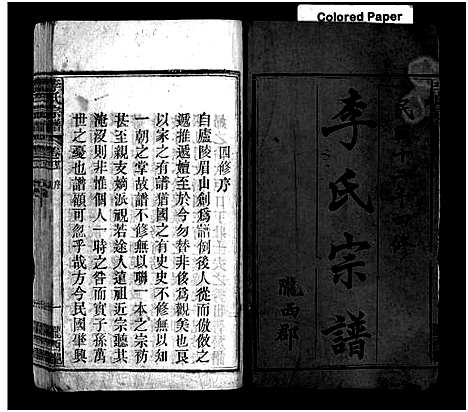 Colored Paper
李氏宗譜
隴西郡
四修序
自廬陵眉山創為譜倒後人從而倣倣之
遞推遞嬗至於今勿替非後為觀美也良
以家之有譜猶國之有史史不修無以知
一朝之掌故譜不修無以聯一本之宗祊
甚至親支嫡派視若途人遠祖近宗聽其
淹沒則非惟個人一時之咎實子孫萬
世之憂也譜顧可忽乎哉方今民國肇興